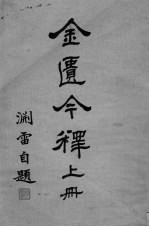 金匱今釋上冊
淵雷自題